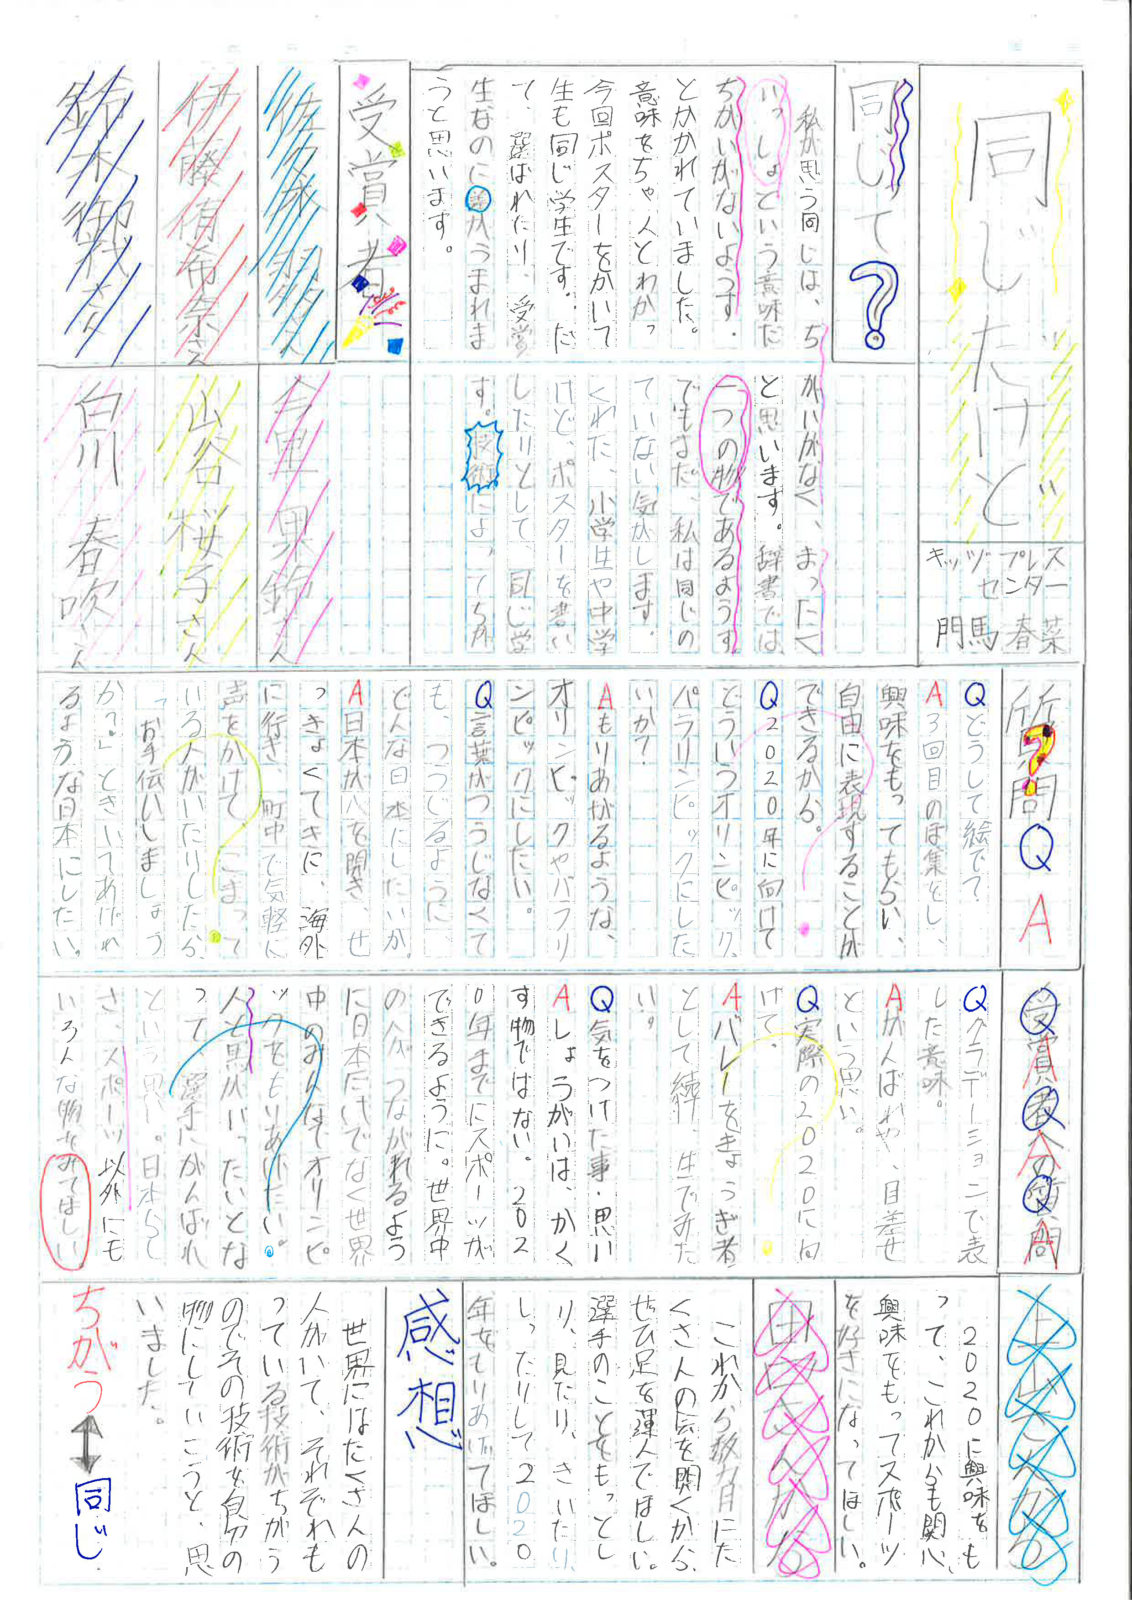 同じだけど
キッズプレス
センター
門馬 春菜
同じて?
私が思う同じは、ち
がいがなく、まったく
いっしょという意味だ
と思います。辞書では
ちがいがないようす・
一つの物であるようす
とかかれていました。
でもまだ、私は同じの
意味をちゃんとわかっ
ていない気がします。
今回ポスターをかいて
くれた、小学生や中学
生も同じ学生です。だ
けど、ポスターを書い
て、選ばれたり、受賞
したりとして、同じ学
生なのに差がうまれま
す。技術によってちが
うと思います。
受賞者
佐々木 さん
今里 果鈴さん
伊藤侑希奈さん
山谷 桜子さん
鈴木 さん
白川 春吹さん
質問QA
Qどうして絵で?
A3回目のぼ集をし、
興味をもってもらい、
自由に表現することが
できるから。
Q2020年に向けて
どういうオリンピック、
パラリンピックにした
いか?
Aもりあがるような、
オリンピックやパラリ
ンピックにしたい。
Q言葉がつうじなくて
も、つうじるように、
どんな日本にしたいか。
A日本が心を開き、せ
っきょくてきに、海外
に行き、町中で気軽に
声をかけて、こまって
いる人がいたりしたら、
「お手伝いしましょう
か?」ときいてあげれ
るような日本にしたい。
受賞者への質問
QA QA
Qグラデーションで表
した意味。
Aがんばれや、目差せ
という思い。
Q実際の2020に向
けて、
Aバレーをきょうぎ者
として続け、生でみた
い。
Q気をつけた事・思い
Aしょうがいは、かく
す物ではない。202
0年までにスポーツが
できるように。世界中
の人が、つながれるよう
に日本だけでなく世界
中のみんなでオリンピ
ックをもりあげたい。
人と馬がいったいとな
って、選手にがんばれ
という思い。日本らし
さ、スポーツ以外にも
いろんな物をみてほしい
上山さんから
2020に興味をも
って、これからも関心、
興味をもってスポーツ
を好きになってほしい。
田口さんから
これから数ヶ月にた
くさんの会を開くから、
ぜひ足を運んでほしい。
選手のことをもっとし
り、見たり、きいたり、
しったりして2020
年をもりあげてほしい。
感想
世界にはたくさんの
人がいて、それぞれも
っている技術がちがう
のでその技術を自分の
物にしていこうと、思
いました。
ちがう↔同じ